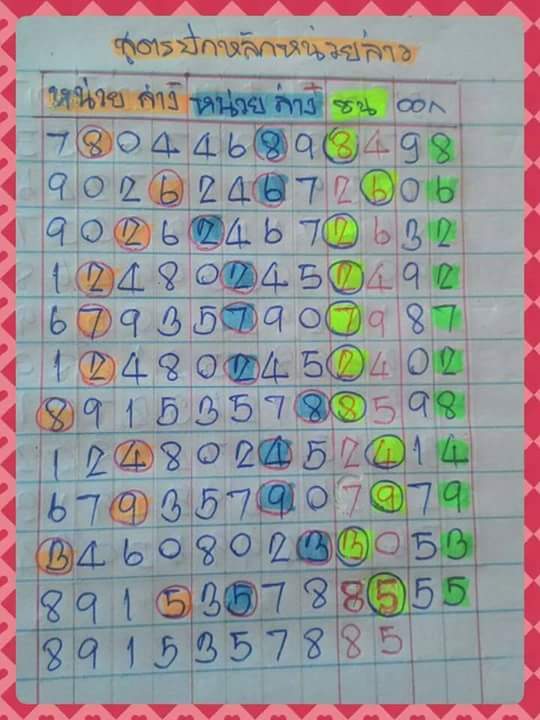 สูตรปักหลักหน่วยลาว
หน่วย ล่าง หน่วย ล่าง ชน ออก
7 8 0 4 4 6 8 9 8 4 9 8
9 0 2 6 2 4 6 7 2 6 0 6
9 0 2 6 2 4 6 7 2 6 3 2
1 2 4 8 0 2 4 5 2 4 9 2
6 7 9 3 5 7 9 0 7 9 8 7
1 2 4 8 0 2 4 5 2 4 0 2
8 9 1 5 3 5 7 8 8 5 9 8
1 2 4 8 0 2 4 5 2 4 1 4
6 7 9 3 5 7 9 0 7 9 7 9
3 4 6 0 8 0 2 3 3 0 5 3
8 9 1 5 3 5 7 8 8 5 5 5
8 9 1 5 3 5 7 8 8 5